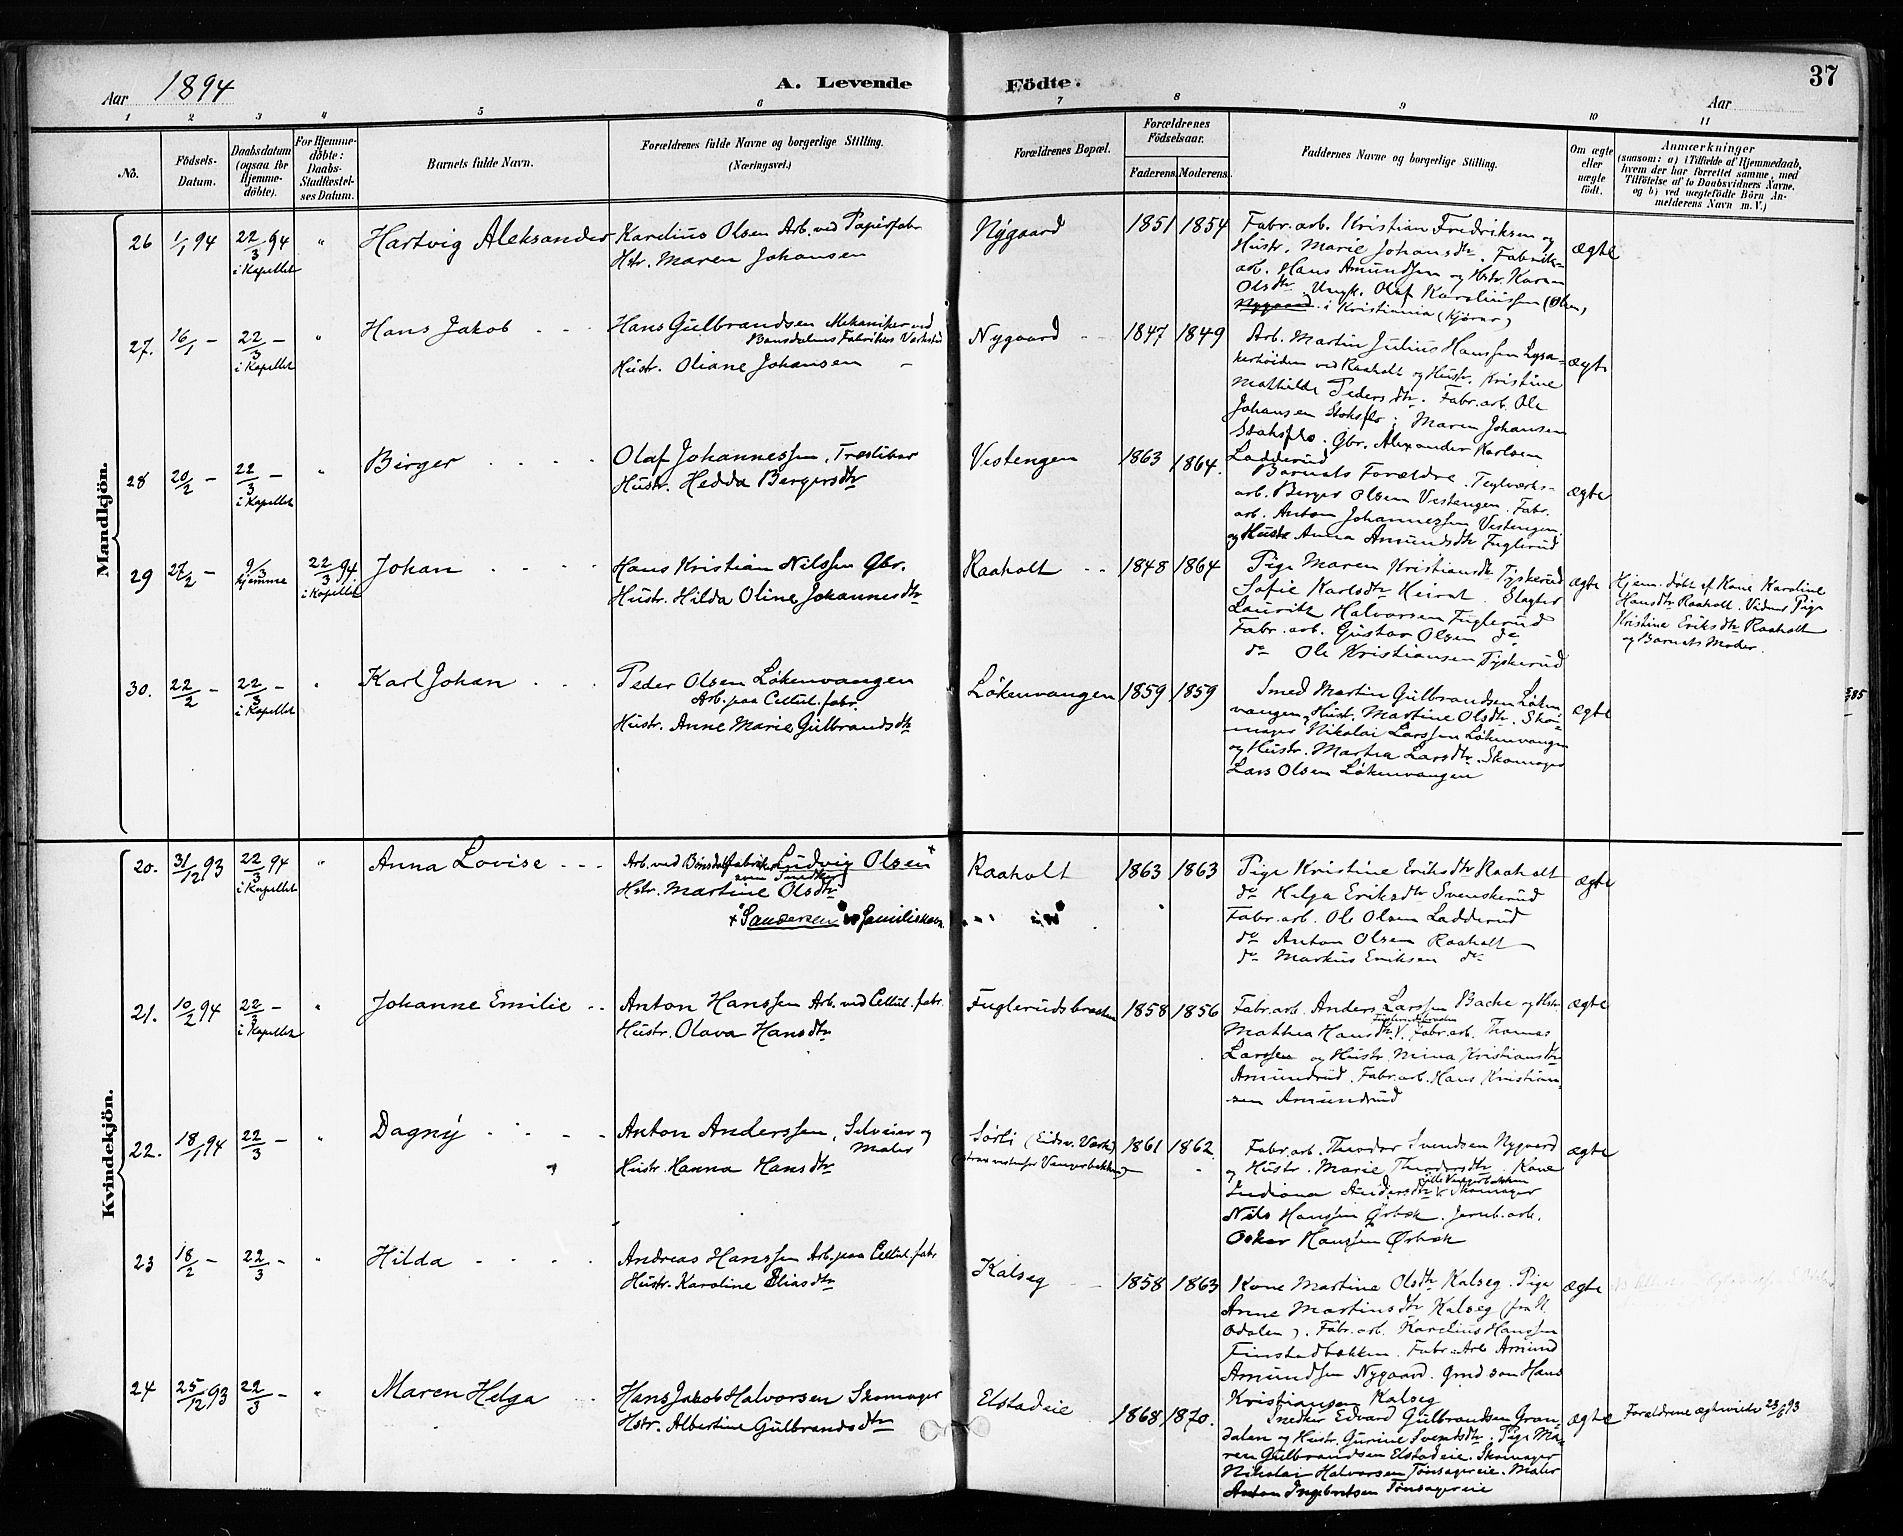 Aar 1894
A. Levende
Födte.
Aar
37
1 2 3 4 5 6 7 8 9 10 11
No.
Födsels-
Datum.
Daabsdatum
(ogsaa for
Hjemme-
döbte).
For Hjemme-
döbte:
Daabs-
Stadfæstel-
ses Datum.
Barnets fulde Navn.
Forældrenes fulde Navne og borgerlige Stilling.
(Næringsvei.)
Forældrenes Bopæl.
Forældrenes
Födselsaar.
Faderens. Moderens.
Faddernes Navne og borgerlige Stilling.
Om ægte
eller
uægte
födt.
Anmærkninger
(saasom: a) i Tilfælde af Hjemmedaab,
hvem der har forrettet samme, med
Tilföielse af to Daabsvidners Navne,
og b) ved uægtefödte Börn An-
melderens Navn m. V.)
Mandkjön.
26 1/1 94 22/3 94 " Hartvig Aleksander
i Kapellet
Karelius Olsen Arb. ved Papirfabr.
Hstr. Maren Johansen
Nygaard 1851 1854
Fabr.arb. Kristian Fredriksen og
Hustr. Marie Johansdtr. Fabrik-
arb. Hans Amundsen og Hstr. Karen
Olsdtr. Ungk. Olaf Kareliussen (Olsen)
Nygaard i Kristiania (Kjører)
ægte
27. 16/1 - 22/3 - " Hans Jakob
i Kapellet
Hans Gulbrandsen Mekaniker ved
Bønsdalens Fabrikers Værksted
Hustr. Oliane Johansen
Nygaard 1847 1849
Arb. Martin Julius Hanssen Lysa-
kerhöiden ved Raaholt og Hustr. Kristine
Mathilde Pedersdtr. Fabr.arb. Ole
Johansen Stoksflo, Maren Johansen
Stoksflo. Gbr. Alexander Karlsen
Ladderud
ægte
28 20/2 - 22/3 - " Birger
i Kapellet
Olaf Johannessen, Træsliber
Hustr. Hedda Bergersdtr
Vestengen 1863 1864.
Barnets Forældre. Teglværks-
arb. Berger Olsen Vestengen. Fabr.
arb. Anton Johannessen Vestengen
og Hustr Anna Amundsdtr Fuglerud
ægte
29 27/2 - 9/3 22/3 94 Johan
hjemme i Kapellet
Hans Kristian Nilssen Gbr.
Hustr. Hilda Oline Johannesdtr
Raaholt 1848 1864
Pige Maren Kristiansdtr Tyskerud
Sofie Karlsdtr . Slagter
Lauritz Halvorsen Fuglerud
Fabr.arb. Gustav Olsen do
do Ole Kristiansen Tyskerud
ægte
Hjem.döbt af Kone Karoline
Hansdtr Raaholt. Vidner Pige
Kristine Eriksdtr Raaholt
og Barnets Moder.
30. 22/2 - 22/3 - " Karl Johan
i Kapellet
Peder Olsen Løkenvangen
Arb. paa Cellul.fabr.
Hustr. Anne Marie Gulbrandsdtr
Løkenvangen 1859 1859
Smed Martin Gulbrandsen Løken-
vangen, Hustr. Martine Olsdtr. Sko-
mager Nikolai Larssen Løkenvangen
og Hustr. Marthea Larsdtr. Skomager
Lars Olsen Løkenvangen
ægte
Kvindekjön.
20. 31/12 93 22/3 94 " Anna Lovise
i Kapellet
Arb. ved Bønsdalsfabriker Ludvig Olsen x
som Snedker
Hstr. Martine Olsdtr
x "Sandersen" Familienavn.
Raaholt 1863 1863
Pige Kristine Eriksdtr Raaholt
do Helga Eriksdtr Svenskerud
Fabr.arb. Ole Olsen Ladderud
do Anton Olsen Raaholt
do Markus Eriksen do
ægte
21. 10/2 94 22/3 - " Johanne Emilie
i Kapellet
Anton Hanssen Arb. ved Cellul.fabr.
Hustr. Olava Hansdtr
Fuglerudsbraaten 1858 1856
Fabr.arb. Anders Larssen Bache og Hstr.
Mathea Hansdtr. Fabr.arb. Thomas
Fuglerudsbraaten
Larssen og Hustr Mina Kristiansdtr
Amundrud. Fabr.arb. Hans Kristian-
sen Amundrud
ægte
22. 18/1 94 22/3 - " Dagny
Anton Anderssen, Selveier og
Maler
Hustr. Hanna Hansdtr
Sørli (Eidsv. Værk)
1861 1862.
Fabr.arb. Theodor Svendsen Nygaard
og Hustr. Marie Theodorsdtr. Kone
Indiana Andersdtr, Skomager
Nils Hanssen Ørbæk. Jernb.arb.
Oskar Hanssen Ørbæk
ægte
23 18/2 - 22/3 - " Hilda
Andreas Hanssen Arb. paa Cellul.fabr.
Hustr. Karoline Eliasdtr
Kalseg 1858 1863
Kone Martine Olsdtr Kalseg. Pige
Anne Martinsdtr Kalseg (fra N.
Odalen). Fabr.arb. Karelius Hanssen
Finstadbakken. Fabr.Arb. Amund
Amundssen Nygaard. Gmd søn Hans
Kristiansen Kalseg
ægte
24 25/12 93 22/3 - " Maren Helga
Hans Jakob Halvorsen Skomager
Hstr. Albertine Gulbrandsdtr
Elstadeie 1868 1870.
Snedker Edvard Gulbrandsen Gran-
dalen og Hustr. Gurine Svendsdtr. Pige Ma-
ren Gulbrandsen Elstadeie. Skomager
Nikolai Halvorsen Tønsagereie. Maler
Anton Ingebretsen Tønsagereie
ægte
Forældrene ægteviede 23/6 93